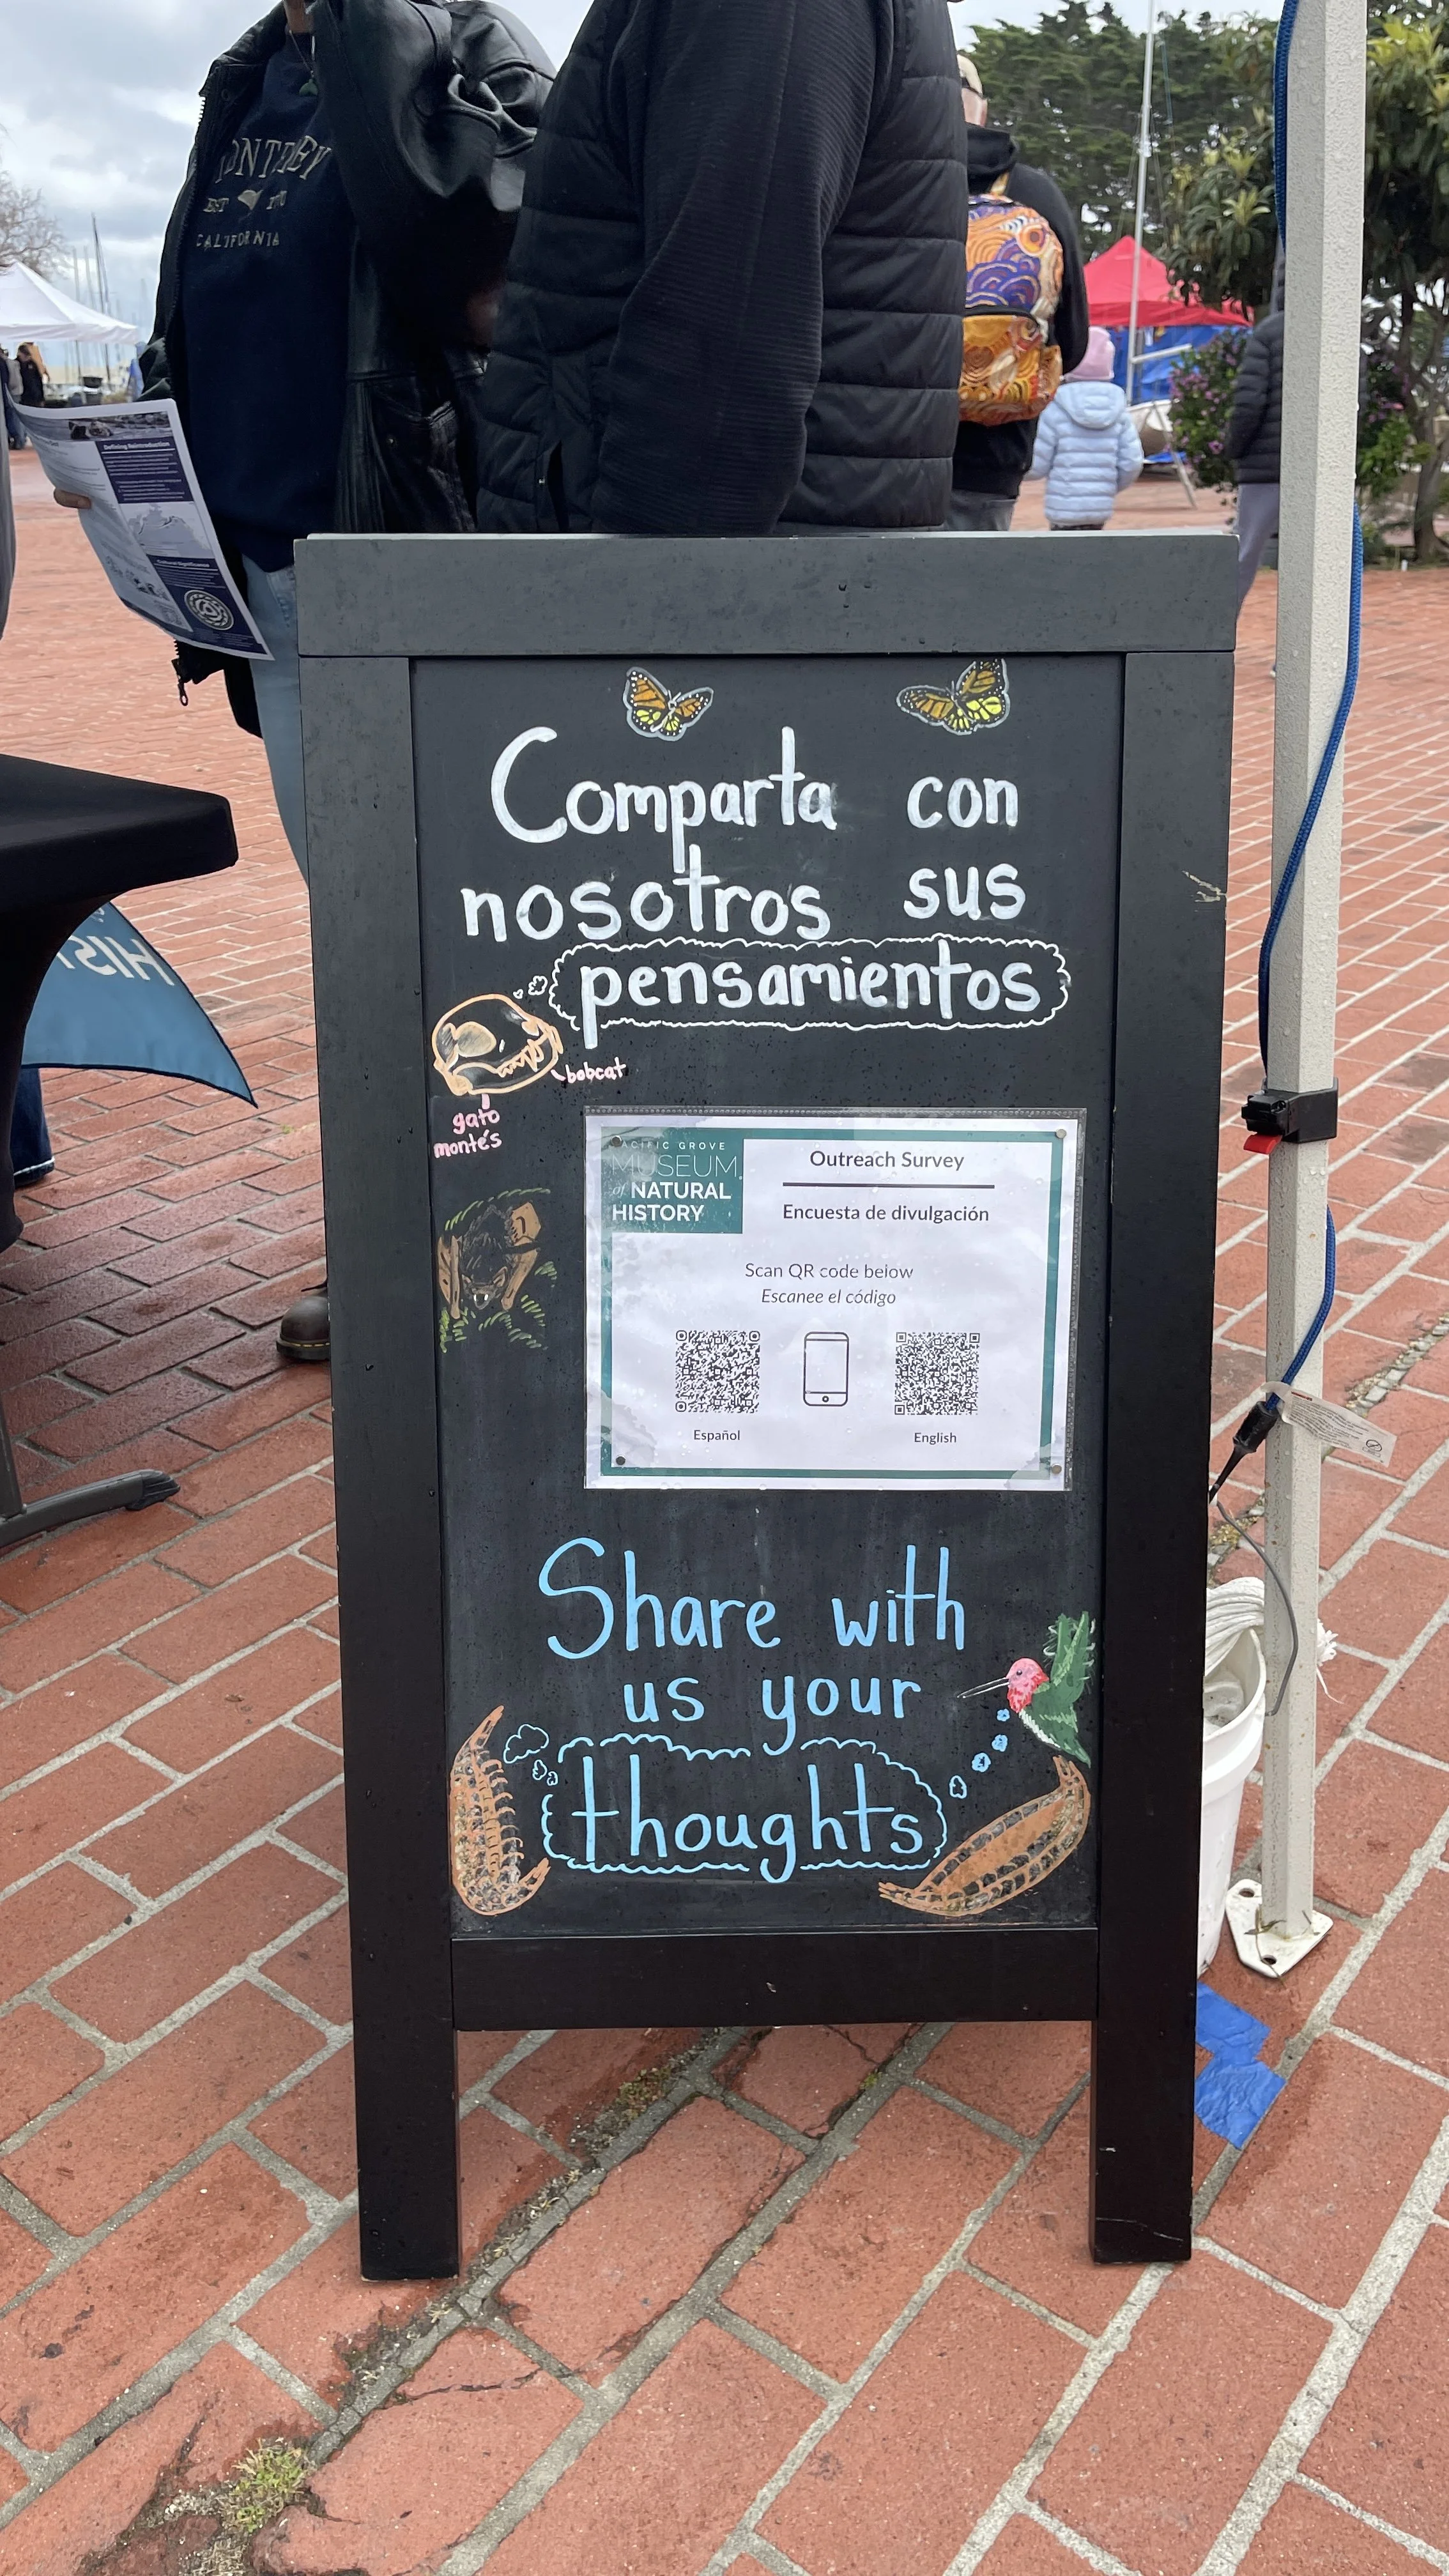 MONTEREY
EST 1770
CALIFORNIA
Defining Reintroduction
Cultural Significance
HIST
Comparta con
nosotros sus
pensamientos
bobcat
gato
montés
PACIFIC GROVE
MUSEUM
of NATURAL
HISTORY
Outreach Survey
Encuesta de divulgación
Scan QR code below
Escanee el código
Español
English
Share with
us your
thoughts